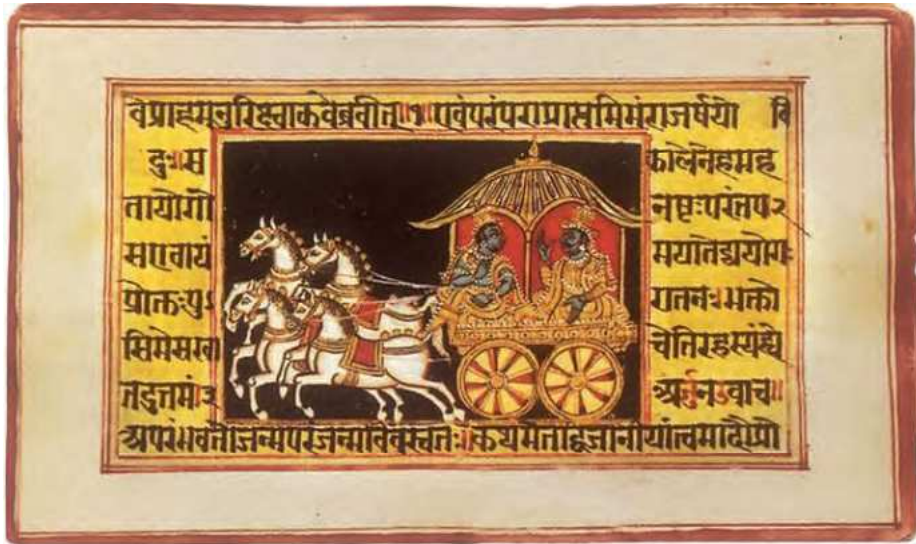 वेप्राहमनुरिक्ष्वाकवेब्रवीत्॥१॥ एवंपरंपराप्राप्तमिमंराजर्षयो वि
दुः॥स कालेनेहमह
तायोगो नष्टःपरंतप२
सएवायं मयातेद्ययोगः
प्रोक्तःपु रातनः॥भक्तो
सिमेसखा चेतिरहस्यंह्ये
तदुत्तमं३ अर्जुनउवाच॥
अपरंभवतोजन्मपरंजन्मविवस्वतः॥कथमेतद्विजानीयांत्वमादौप्रो